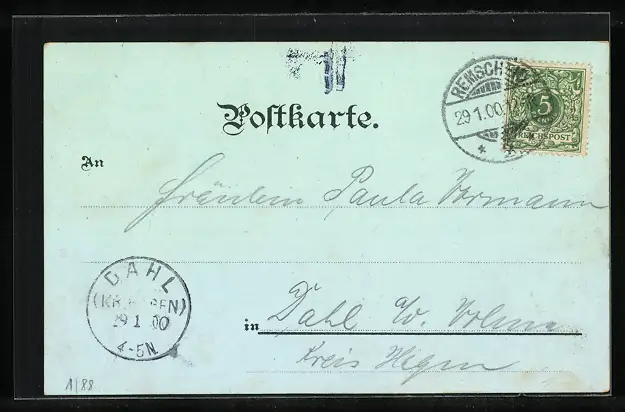 Postkarte.
REMSCHEID
29 1.00
5
REICHSPOST
An
Fräulein Paula Vormann
DAHL
(KR. HAGEN)
29 1 00
4-5N
in Dahl a/d. Volme
Kreis Hagen
1/88